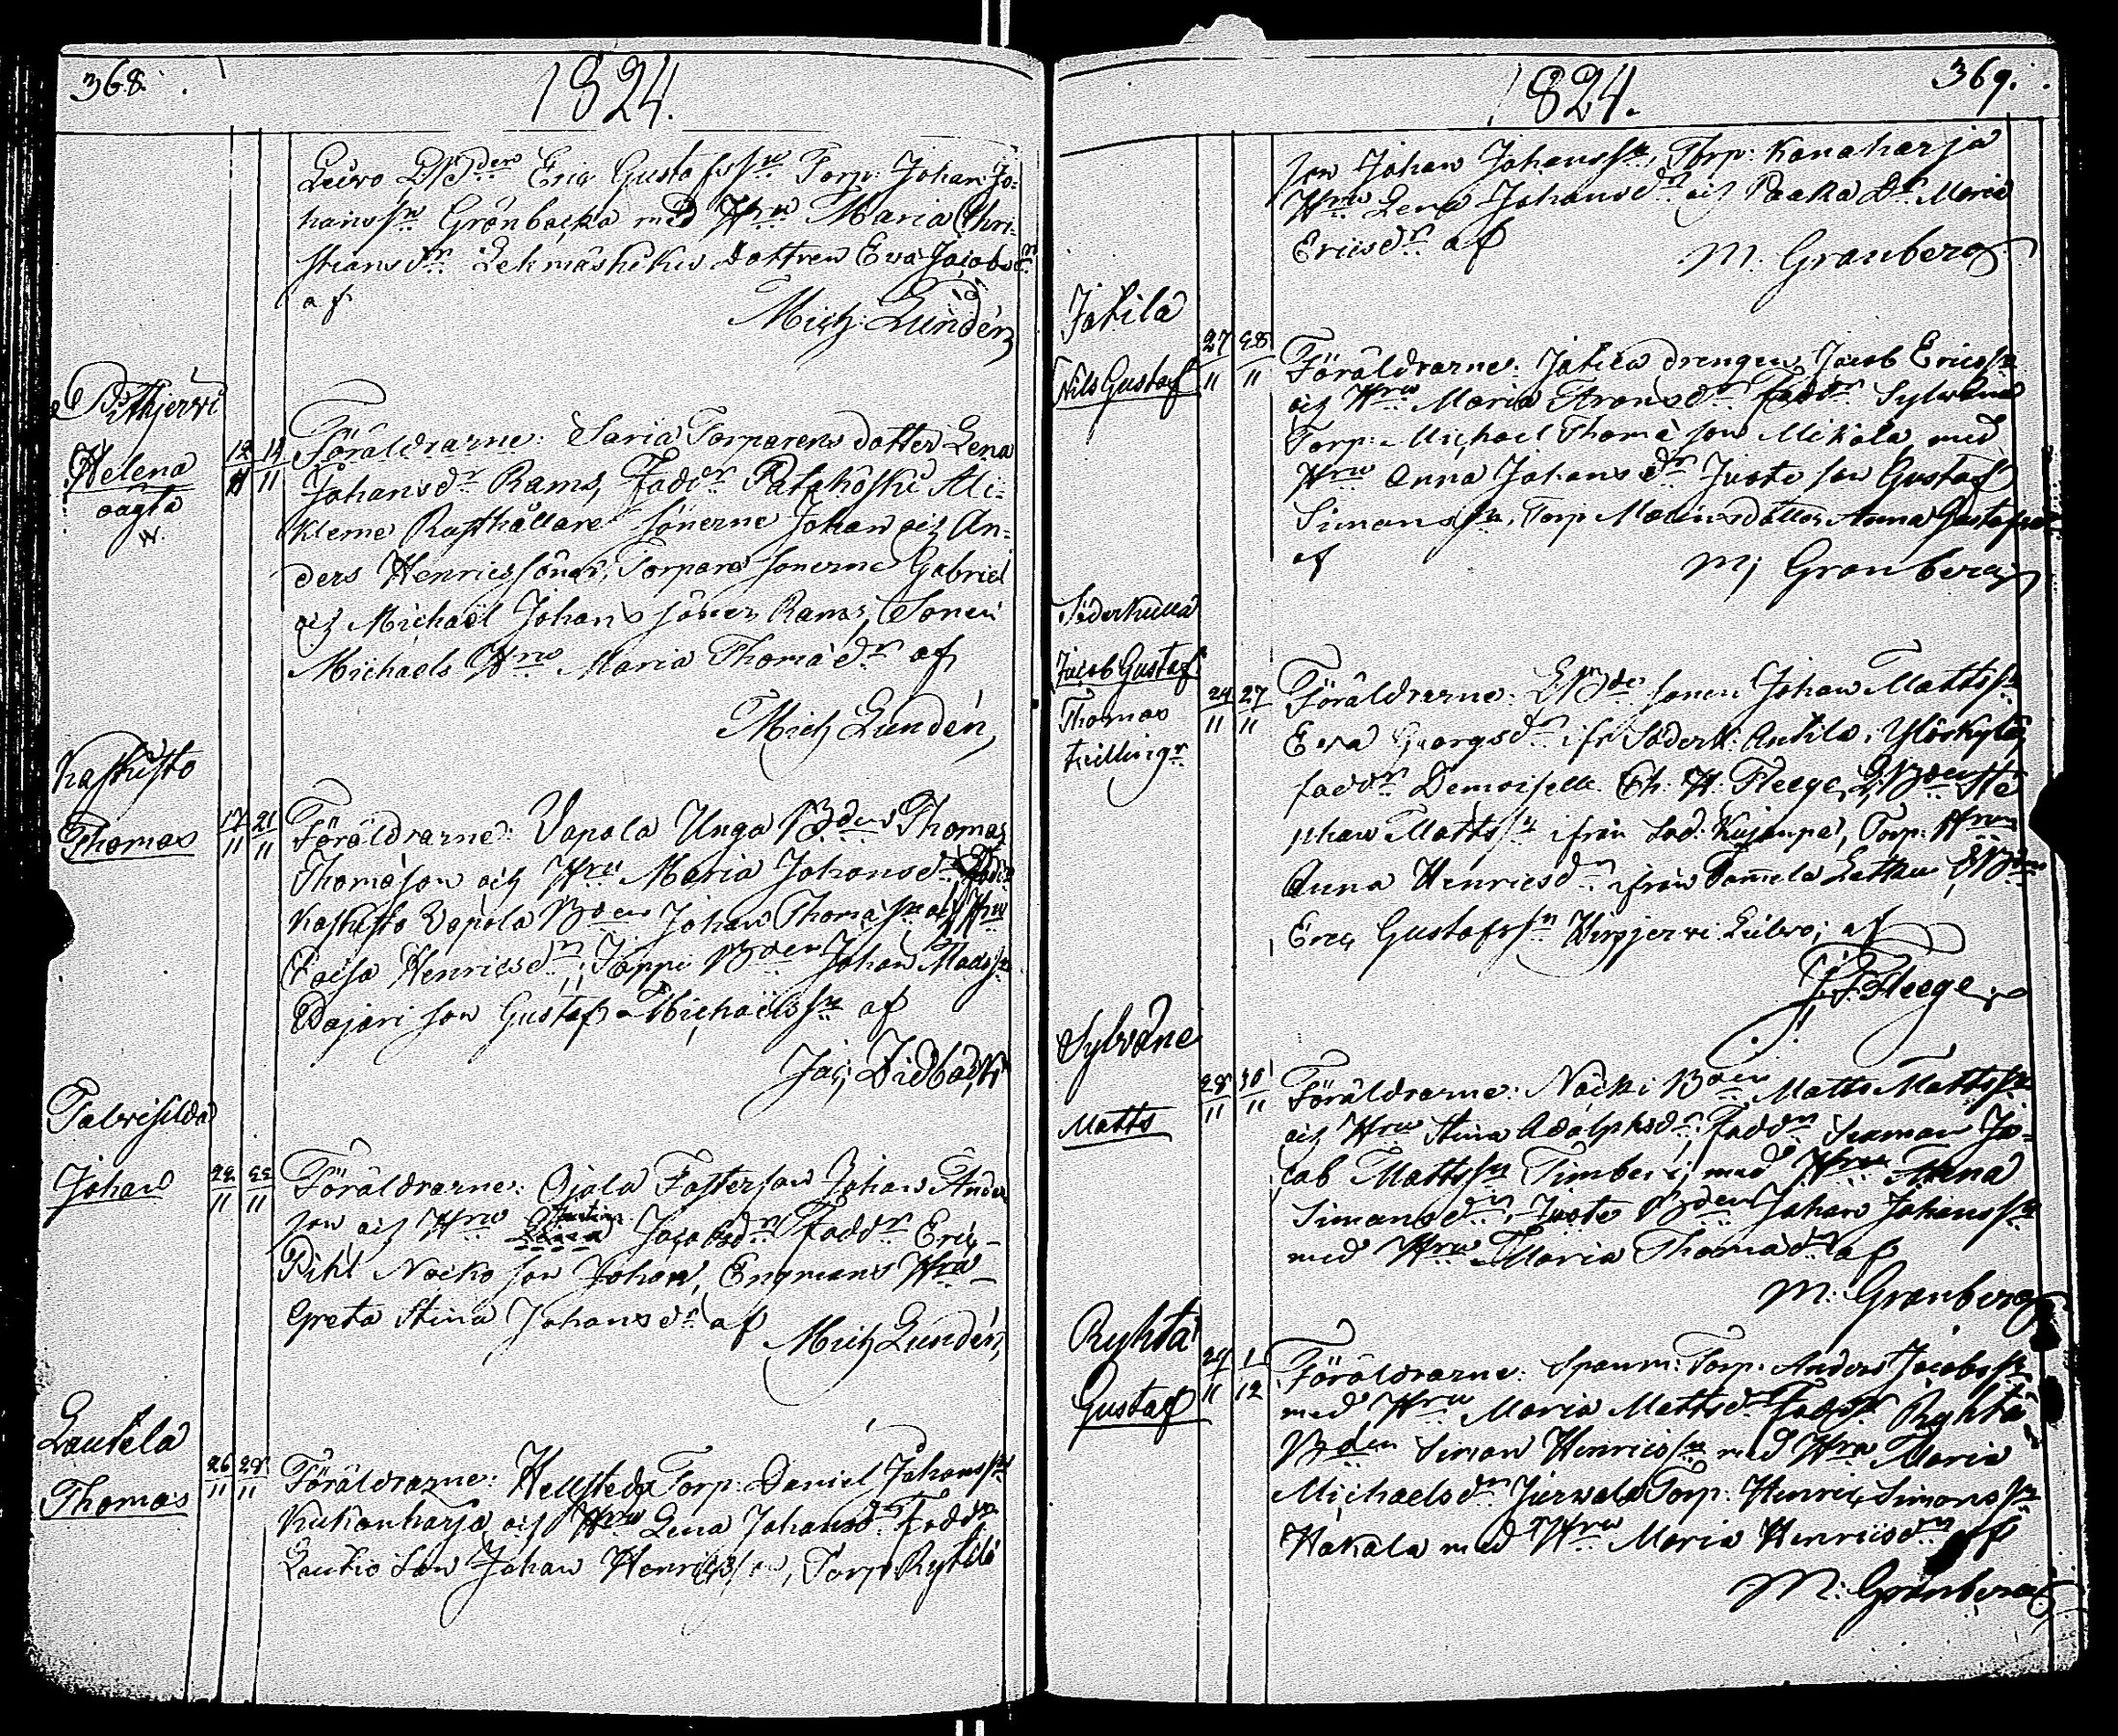 368.
1824.
Leivo LBden Eric Gustafssn Torp: Johan Jo-
hanssn Grönbacka med Hru Maria Chri-
stiansdr Lekmäshikis dottren Eva Jacobsdr
af
Mich: Lundén,
Pithjervi
Helena
oägta
12 14
11 11
Föräldrarne: Saria Torparens dotter Lena
Johansdr Rams, Faddr Patakoski Ali-
Kleme Rusthållare sönerne Johan och An-
ders Henricssöner, Torpare sönerne Gabriel
och Michaël Johans söner Rams, Sonen
Michaels Hru Maria Thomædr af
Mich Lundén,
Kaskisto
Thomas
17 21
11 11
Föräldrarne: Vapola Unga Bdens Thomas
Thomæson och Hru Maria Johansdr
Kaskisto Vapola Bden Johan Thomæsn och Hru
Caisa Henricsdr, Jäppi Bden Johan Madssn
Pajari son Gustaf Michaëlssn af
Jac: Lidbäck
Talvisilda
Johan
22 22
11 11
Föräldrarne: Ojala Fosterson Johan Anders
son och Hru Justina Jacobsdr Faddr Eric
Pihl Näcko son Johan, Engmans Hru
Greta Stina Johansdr af
Mich Lundén,
Lautela
Thomas
26 28
11 11
Föräldrarne: Hellstedz Torp: Daniel Johanssn
Kukonharja och Hru Lena Johansdr Faddr
Lautio Son Johan Henricsson, Torp: Rytilä
369.
1824.
son Johan Johanssn, Torp: Kanaharja
Hru Lena Johansdr och Paaka Dr Maria
Ericsdr af
M. Granberg
Jatila
Nils Gustaf
27 28
11 11
Föräldrarne: Jatila drengen Jacob Ericssn
och Hru Maria Aronsdr Faddr Sylväne
Torp: Michael Thomæ son Mikola med
Hru Anna Johansdr Juote son Gustaf
Simonssn, Torp Malins dotter Anna Gustafsdr
af
M: Granberg
Söderkulla
Jacob Gustaf
Thomas
tvillingr
24 27
11 11
Föräldrarne: LBde sonen Johan Mattssn
Eva Georgsdr ifr Söderk: Antila i Yliskylä,
faddr Demoiselle Ch. H. Fleege, LBden
Johan Mattssn ifrån Sod: Kujanpä, Torp: Hru
Anna Henricsdr ifrån Tamela Lettan LBden
Eric Gustafssn Hirsjervi Leivo; af
J: F: Fleege
Sylväne
Matts
28 30
11 11
Föräldrarne: Näcki Bden Matts Mattssn
och Hru Stina Adolphsdr Faddr Seaman Ja-
cob Mattssn Timber; med Hru Anna
Simonsdr, Juote Bden Johan Johanssn
med Hru Maria Thomædr af
M: Granberg
Ryhtä
Gustaf
29 1
11 12
Föräldrarne: Spanm: Torp: Anders Jacobssn
med Hru Maria Mattsdr Faddr Ryhtä
Bden Simon Henricssn med Hru Maria
Michaelsdr Jervala Torp: Henric Simonssn
Hakala med Hru Maria Henricsdr af
M: Granberg